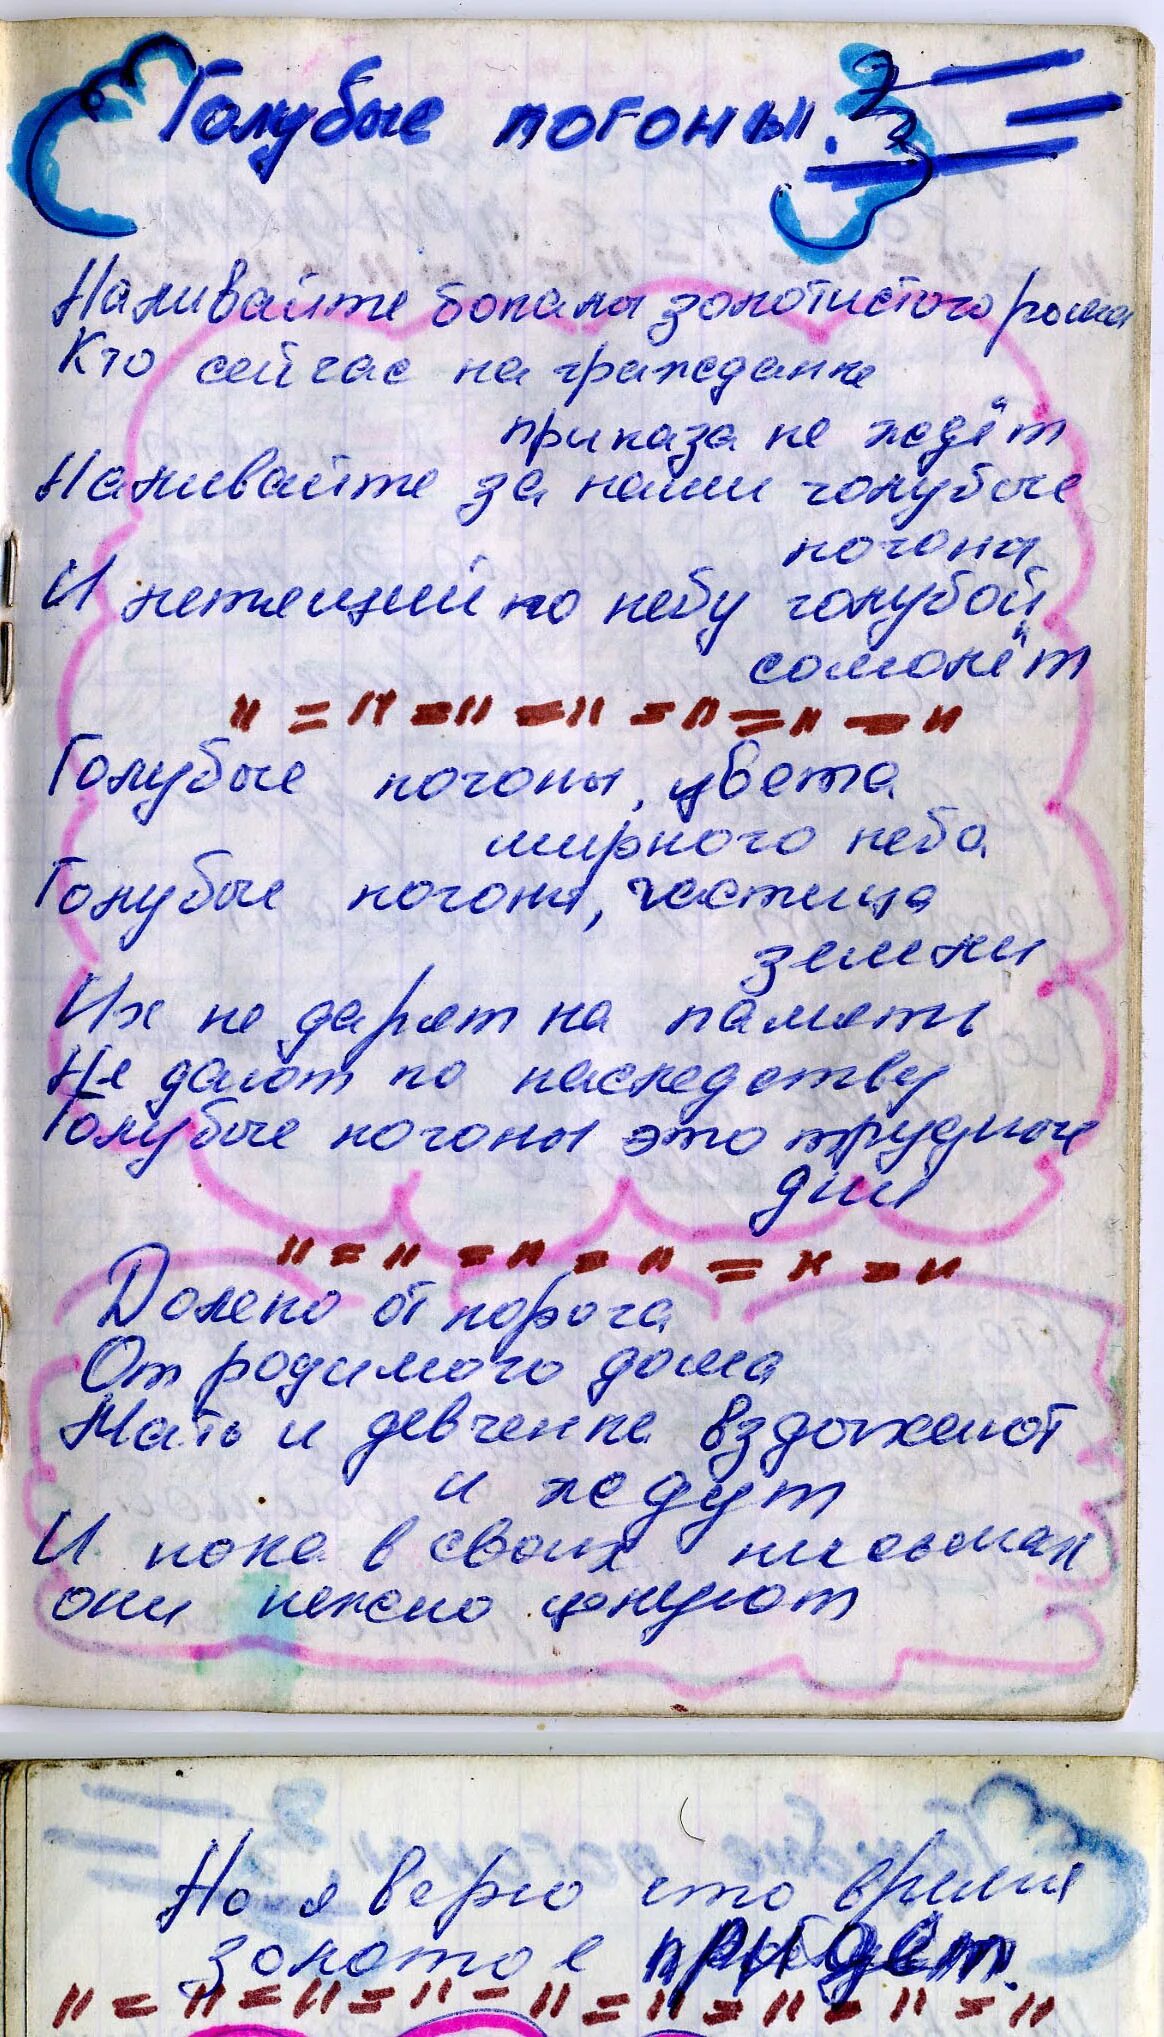 Голубые погоны.
Наливайте бокалы золотистого рома
Кто сейчас на гражданке
приказа не ждёт
Наливайте за наши голубые
погоны
И летящий по небу голубой
самолёт
Голубые погоны, цвета
мирного неба
Голубые погоны, частица
земли
Их не дарят на память
Не дают по наследству
Голубые погоны это трудные
дни
Далеко от порога
От родимого дома
Мать и девченка вздыхают
и ждут
И пока в своих письмах
они нежно целуют
Но я верю что время
золотое придет.